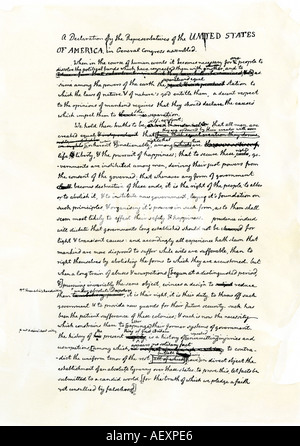 A Declaration by the Representatives of the UNITED STATES
OF AMERICA, in General Congress assembled.
When in the course of human events it becomes necessary for people to
dissolve the political bands which have connected them with another, and to
as-
sume among the powers of the earth the station to
which the laws of nature & of nature's god entitle them, a decent respect
to the opinions of mankind requires that they should declare the causes
which impel them to the separation.
We hold these truths to be that all men are
created equal
life & liberty, & the pursuit of happiness; that to secure these go-
vernments are instituted among men, deriving their just powers from
the consent of the governed; that whenever any form of government
becomes destructive of these ends, it is the right of the people to alter
or to abolish it, & to institute new government, laying it's foundation on
such principles & organising it's powers in such form, as to them shall
seem most likely to effect their safety & happiness. prudence indeed
will dictate that governments long established should not be changed for
light & transient causes: and accordingly all experience hath shewn that
mankind are more disposed to suffer while evils are sufferable, than to
right themselves by abolishing the forms to which they are accustomed. but
when a long train of abuses & usurpations [begun at a distinguished period
& pursuing invariably the same object, evinces a design to reduce
them it is their right, it is their duty, to throw off such
government & to provide new guards for their future security. such has
been the patient sufferance of these colonies; & such is now the necessity
which constrains them to their former systems of government.
the history of present is a history of injuries and
usurpations, among which
-dict the uniform tenor of the rest in direct object the
establishment of an absolute tyranny over these states. to prove this let facts be
submitted to a candid world [for the truth of which we pledge a faith
yet unsullied by falsehood]
alamy
alamy
alamy
AEXPE6